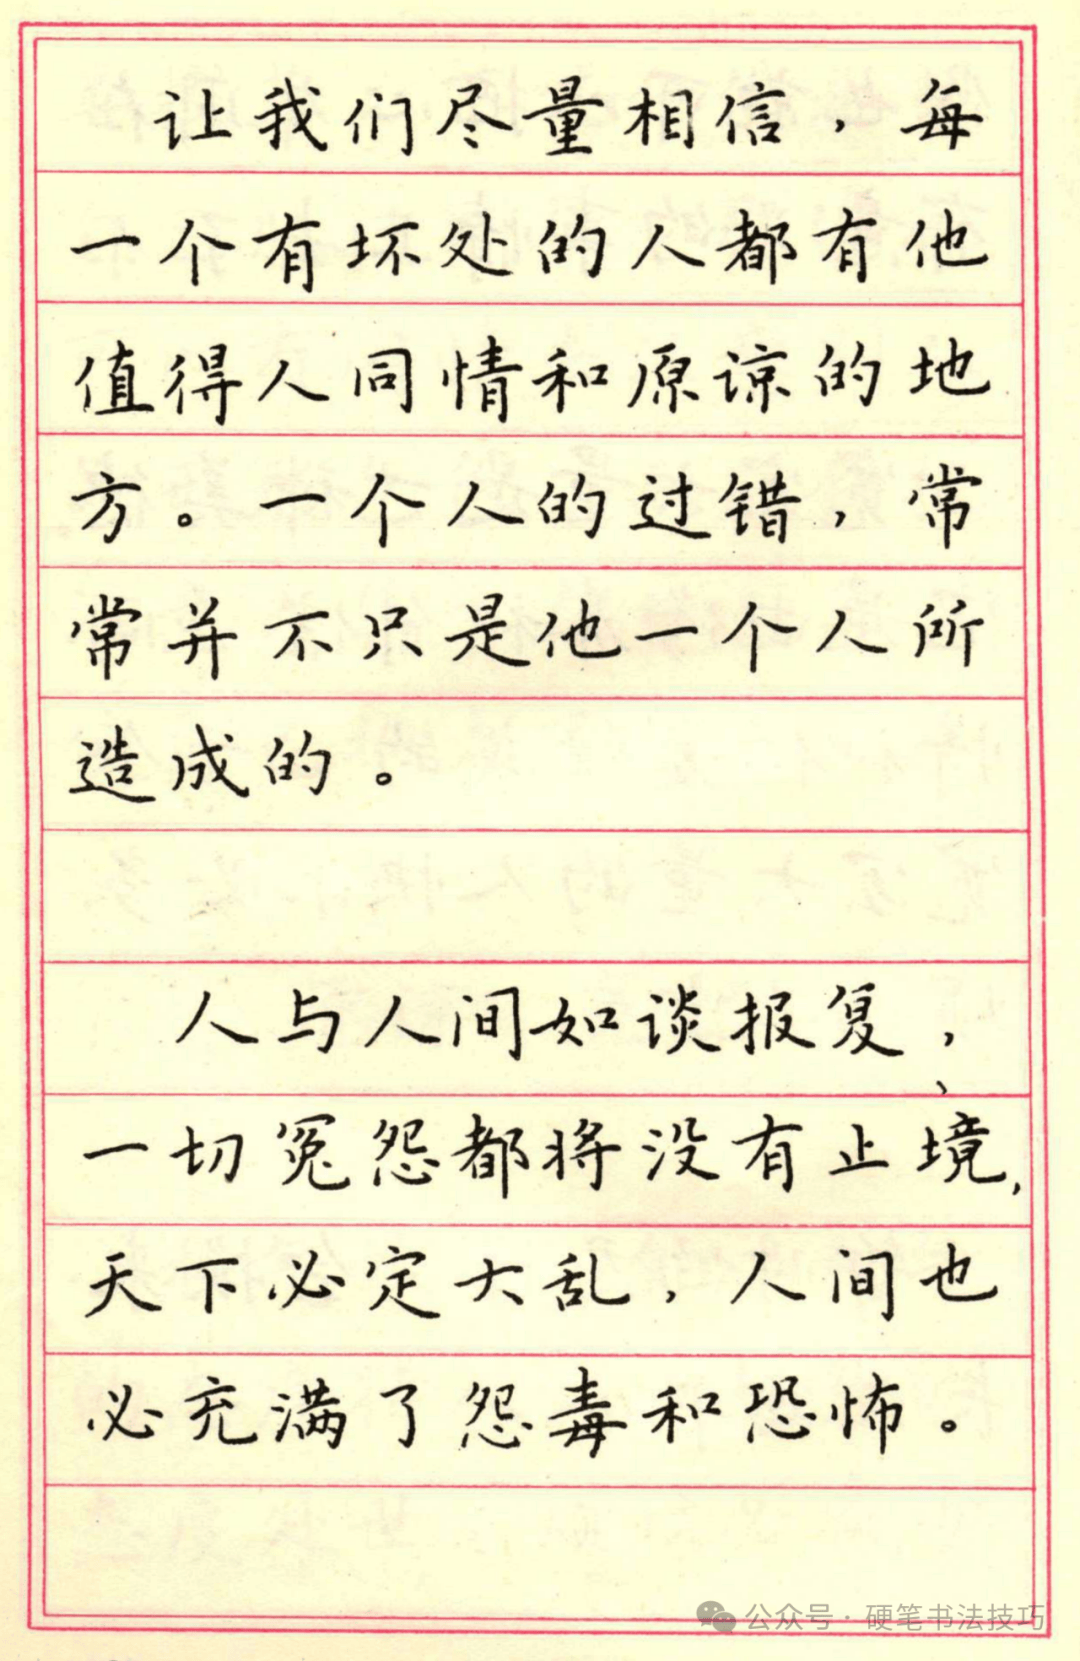 让我们尽量相信，每
一个有坏处的人都有他
值得人同情和原谅的地
方。一个人的过错，常
常并不只是他一个人所
造成的。
人与人间如谈报复，
一切冤怨都将没有止境，
天下必定大乱，人间也
必充满了怨毒和恐怖。
公众号·硬笔书法技巧